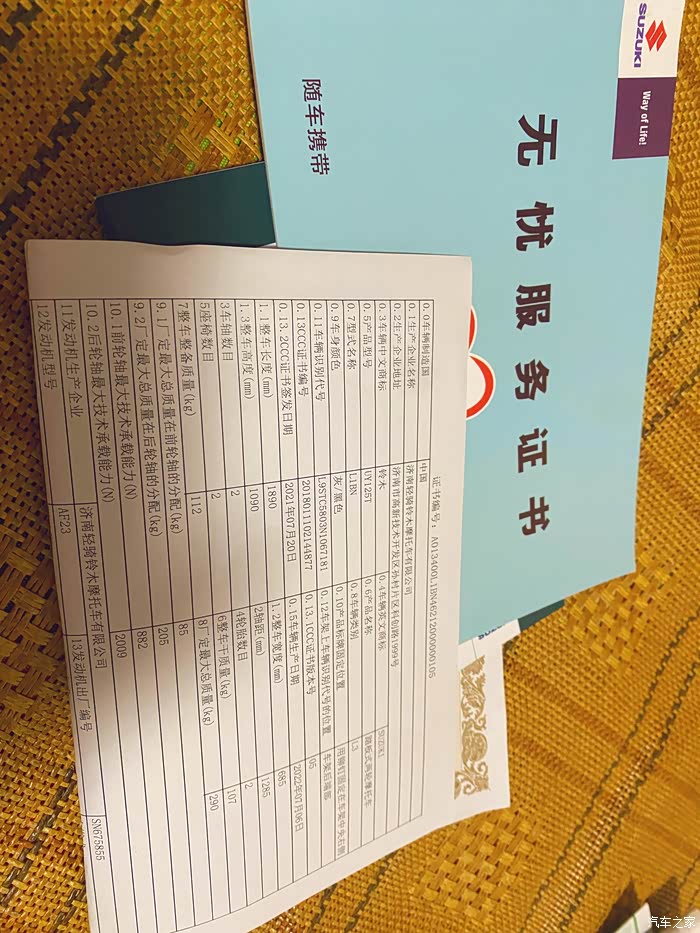 SUZUKI
Way of Life!
无忧服务证书
随车携带
证书编号: A013400L1BN4E212000000105
0.0车辆制造国 中国
0.1生产企业名称 济南轻骑铃木摩托车有限公司
0.2生产企业地址 济南市高新技术开发区孙村片区科创路1999号
0.3车辆中文商标 铃木 0.4车辆英文商标 SUZUKI
0.5产品型号 UY125T 0.6产品名称 踏板式两轮摩托车
0.7型式名称 L1BN 0.8车辆类别 L3
0.9车身颜色 灰/黑色 0.10产品标牌固定位置 用铆钉固定在车架中央右侧
0.11车辆识别代号 L9STC5803N1067181 0.12车架上车辆识别代号的位置 车架后端部
0.13CCC证书编号 2018011102144877 0.13.1CCC证书版本号 05
0.13.2CCC证书签发日期 2021年07月20日 0.15车辆生产日期 2022年07月06日
1.1整车长度(mm) 1890 1.2整车宽度(mm) 685
1.3整车高度(mm) 1090 2轴距(mm) 1285
3车轴数目 2 4轮胎数目 2
5座椅数目 2 6整车干质量(kg) 107
7整车整备质量(kg) 112 8厂定最大总质量(kg) 290
9.1厂定最大总质量在前轮轴的分配(kg) 85
9.2厂定最大总质量在后轮轴的分配(kg) 205
10.1前轮轴最大技术承载能力(N) 882
10.2后轮轴最大技术承载能力(N) 2009
11发动机生产企业 济南轻骑铃木摩托车有限公司
12发动机型号 AF23 13发动机出厂编号 SN675855
汽车之家